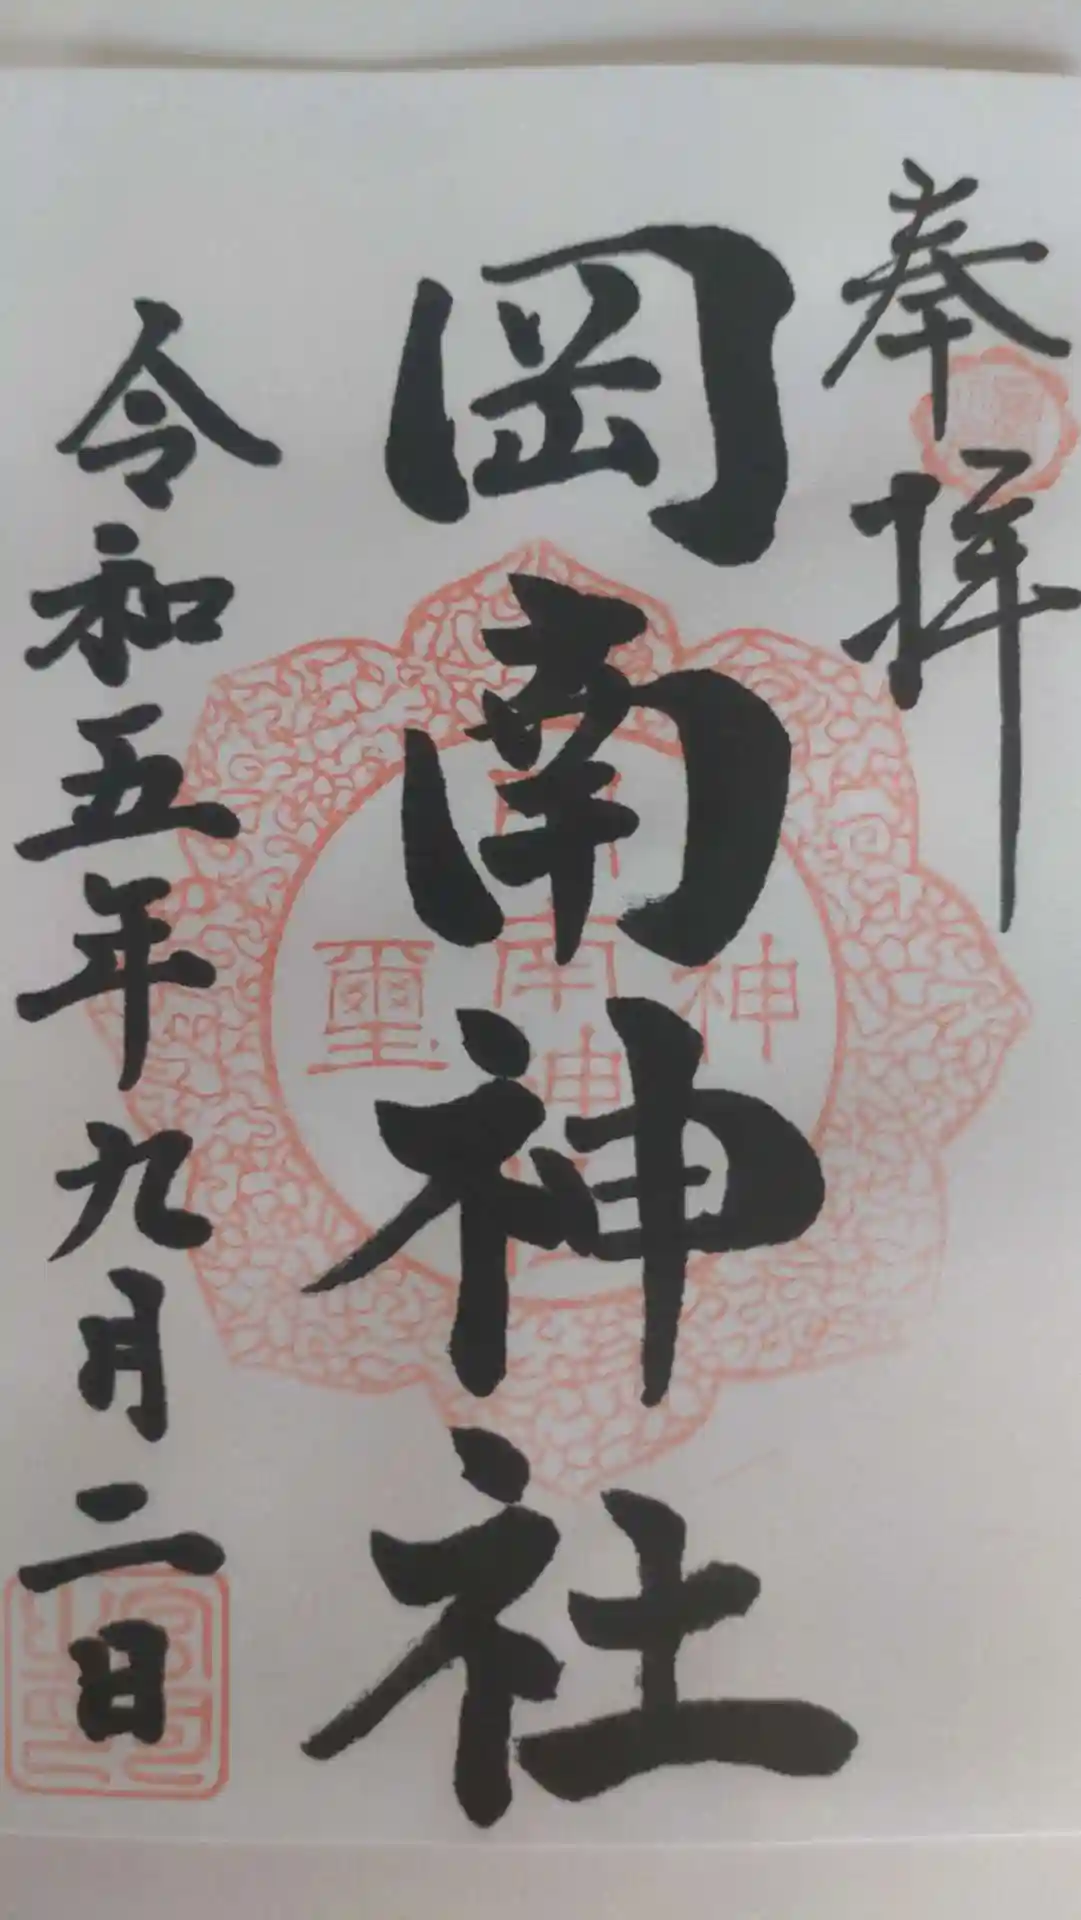 奉拝
岡南神社
神
岡南神社
璽
令和五年九月二日